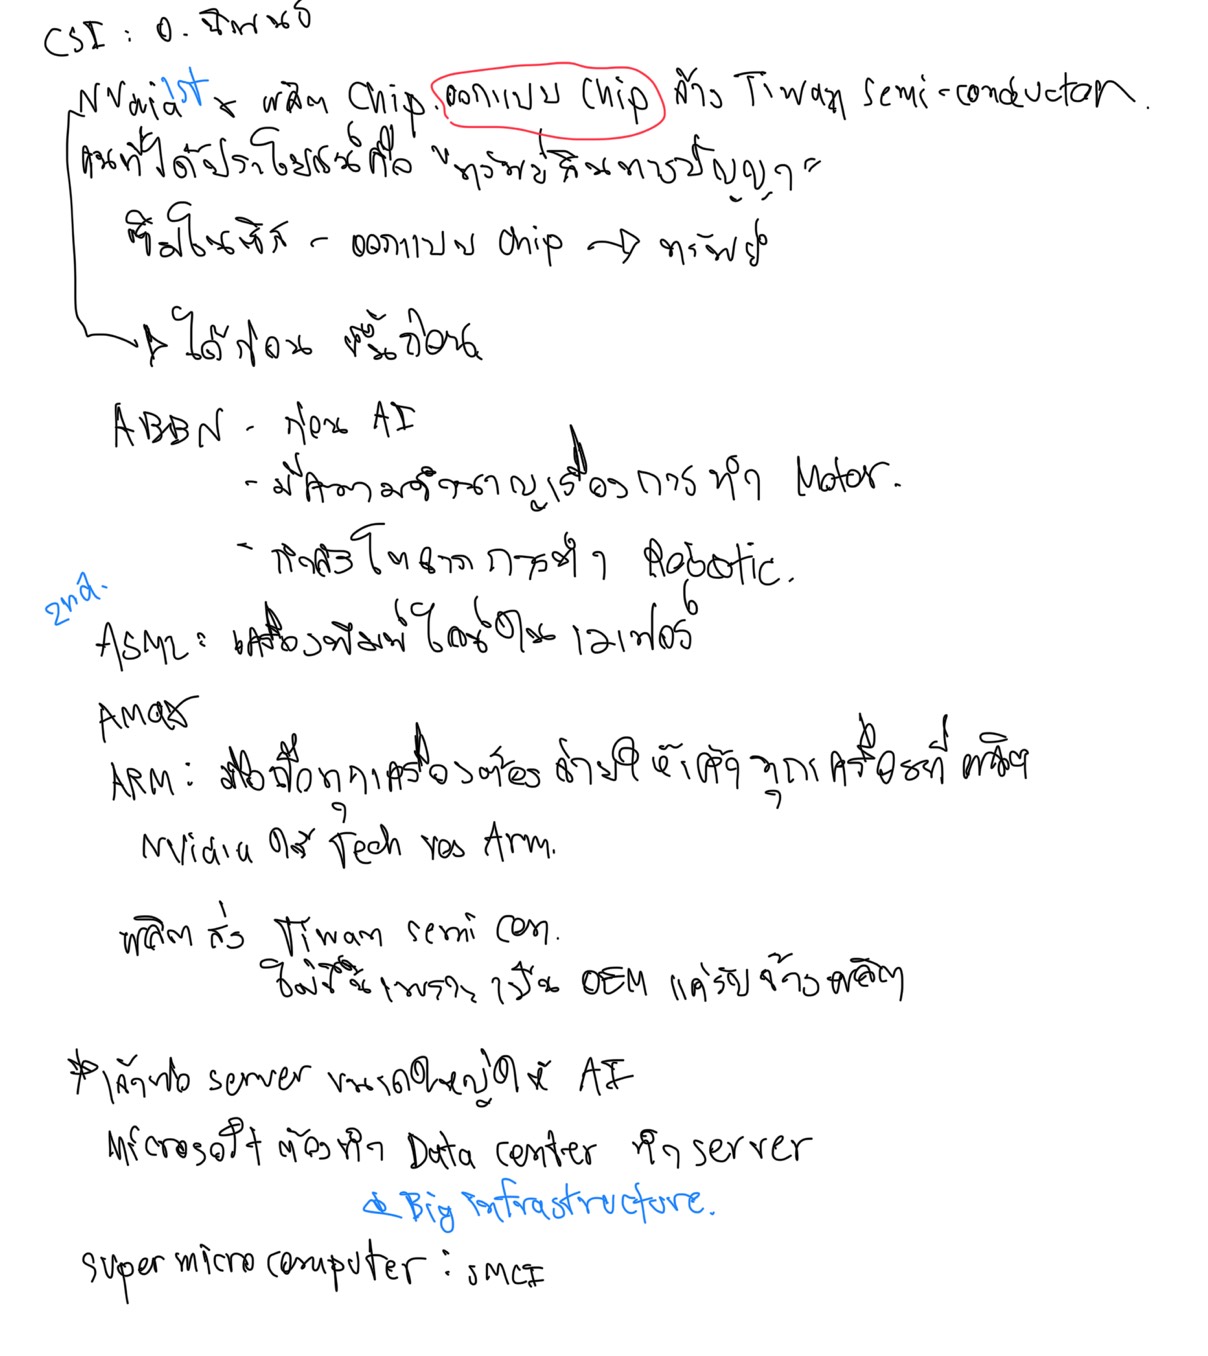 CSI : อ.
NVdia 1st x ผลิต Chip. ออกแบบ Chip จ้าง Tiwan semi-conductor.
คนที่ได้ประโยชน์คือ "ทรัพย์สินทางปัญญา"
- ออกแบบ chip → ทรัพย์
→ ได้ก่อน ขึ้นก่อน
ABBN - ก่อน AI
- มีความชำนาญเรื่องการทำ Motor.
- กำลังโตจากการทำ Robotic.
2nd.
ASML : เครื่องพิมพ์ไลน์ใน เวเฟอร์
AMAX
ARM : มือถือทุกเครื่องต้องจ่ายให้ ทุกเครื่องที่ผลิต
NVidia ใช้ Tech ของ Arm.
ผลิต ส่ง Tiwan semi con.
ไม่ขึ้นเพราะเป็น OEM แค่รับจ้างผลิต
* เจ้าพ่อ server ขนาดใหญ่ให้ AI
Microsoft ต้องทำ Data center ทำ server
Big infrastructure.
super micro computer : SMCI